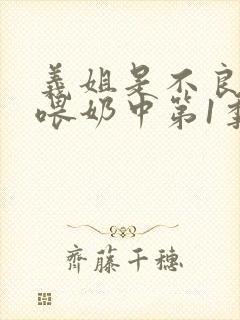 義姐是不良
喂奶中第1季
齊藤千穗